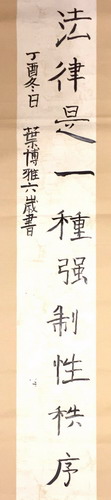 法律是一種强制性秩序
丁酉冬日 葉博雅六歲書